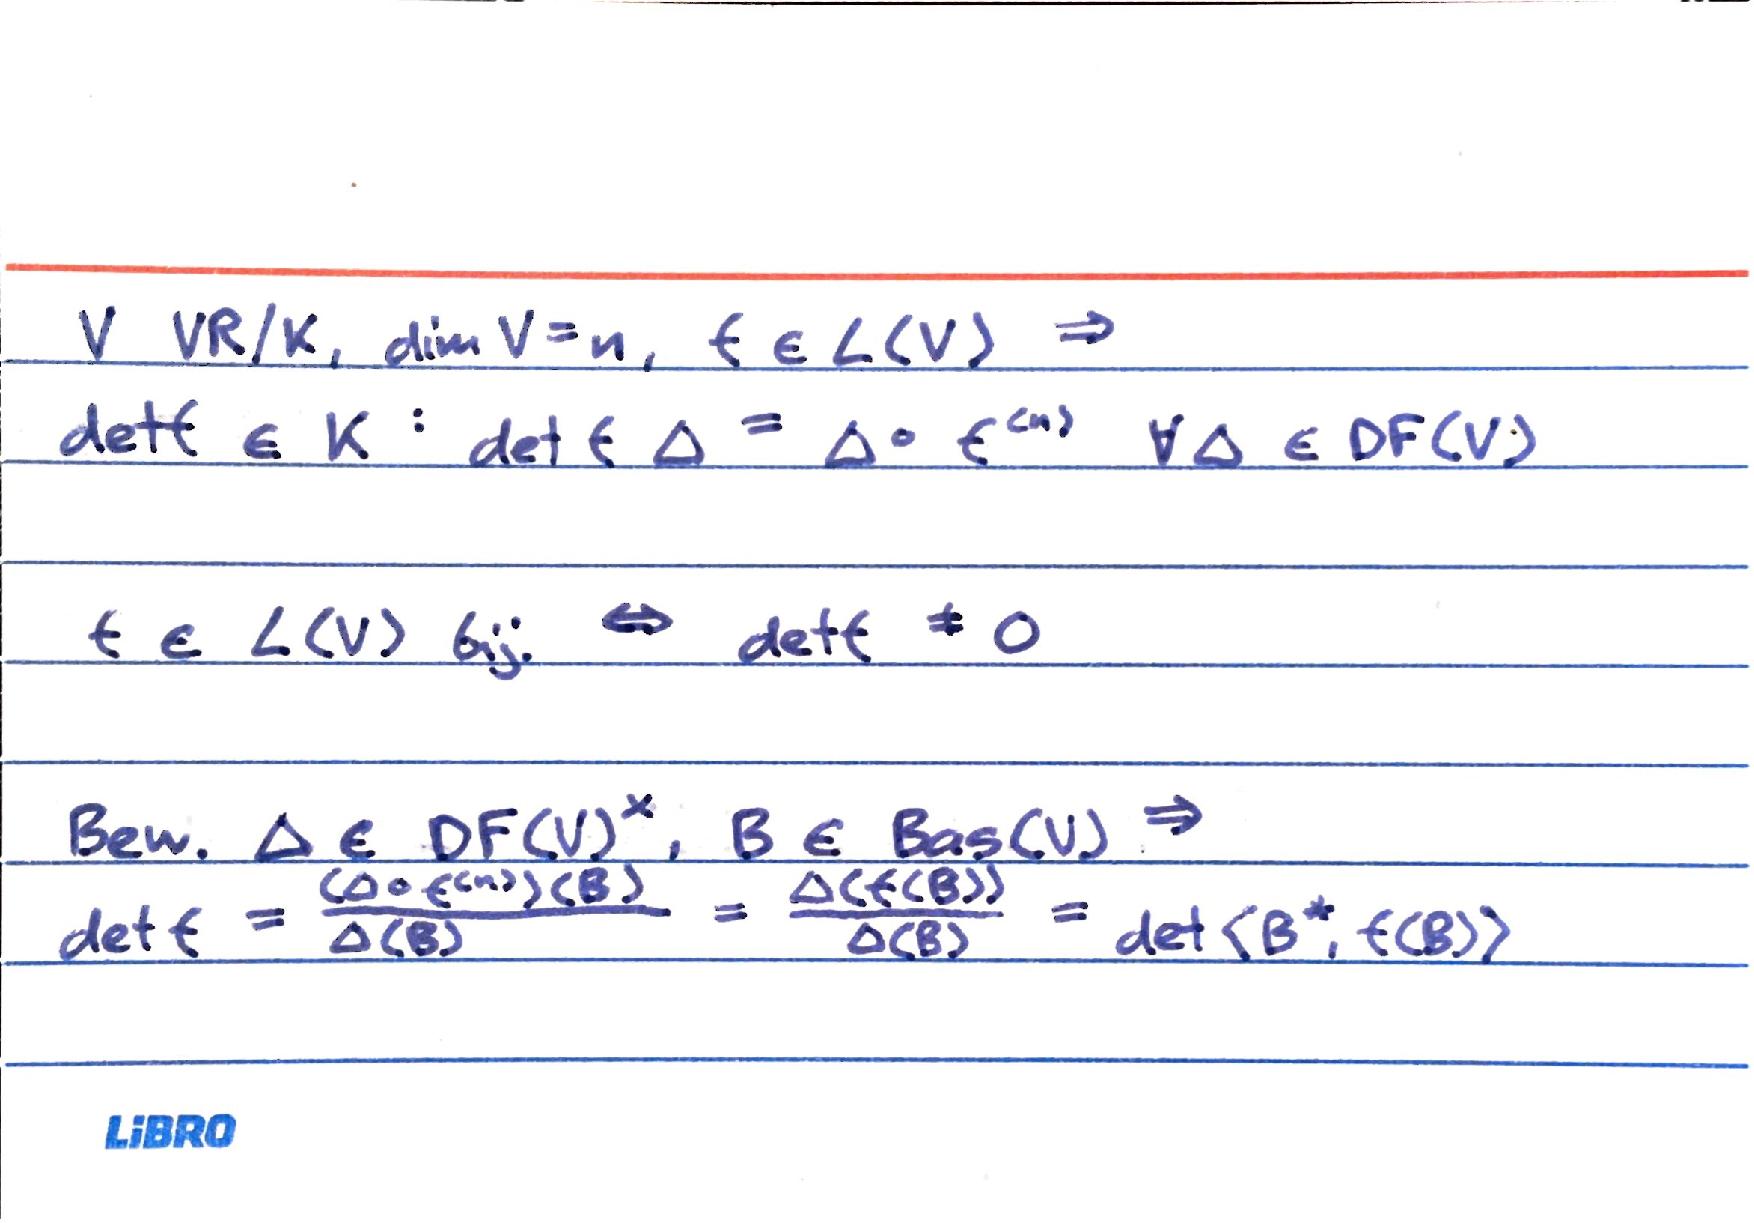 V VR/K, dim V = n, f ∈ L(V) ⇒
det f ∈ K : det f Δ = Δ ∘ f⁽ⁿ⁾ ∀Δ ∈ DF(V)
f ∈ L(V) bij. ⇔ det f ≠ 0
Bew. Δ ∈ DF(V)ˣ, B ∈ Bas(V) ⇒
det f = (Δ ∘ f⁽ⁿ⁾)(B) / Δ(B) = Δ(f(B)) / Δ(B) = det ⟨B*, f(B)⟩
LiBRO